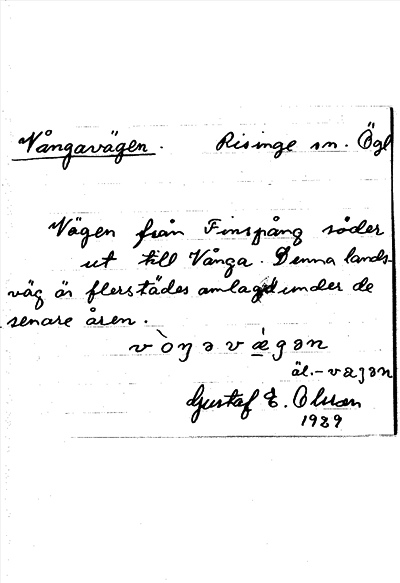 Vångavägen. Risinge sn. Ögl
Vägen från Finspång söder
ut till Vånga. Denna lands-
väg är flerstädes omlagd under de
senare åren.
v`oŋəvǽgən
äl.-væȝən
Gustaf E. Olsson
1929